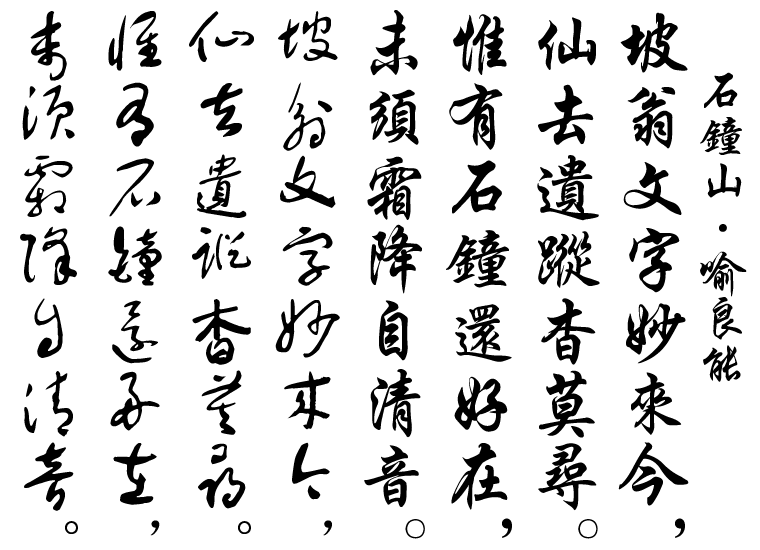 石鐘山・喻良能
坡翁文字妙來今，
仙去遺蹤杳莫尋。
惟有石鐘還好在，
未須霜降自清音。
坡翁文字妙來今，
仙去遺蹤杳莫尋。
惟有石鐘還好在，
未須霜降自清音。